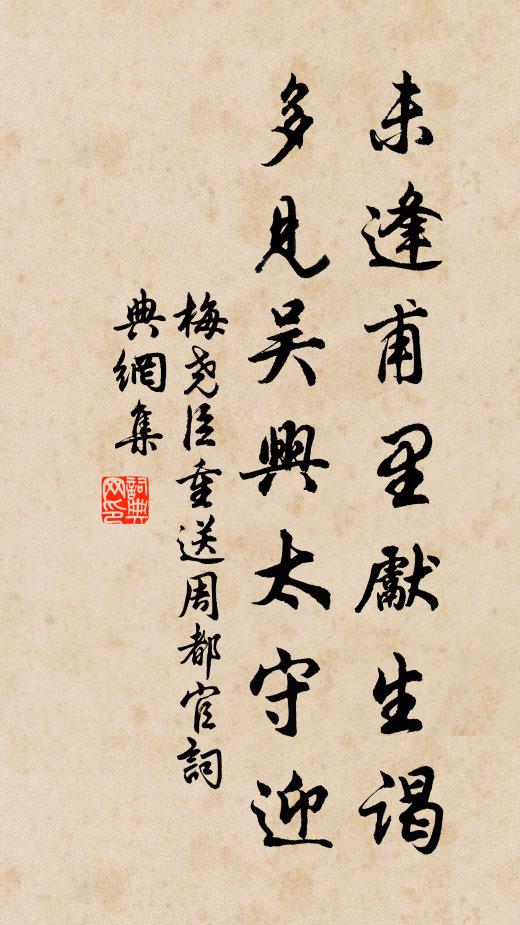 未逢甫里獻生謁
多見吴興太守迎
梅尧臣重送周都官詞
典網集
詞典網印